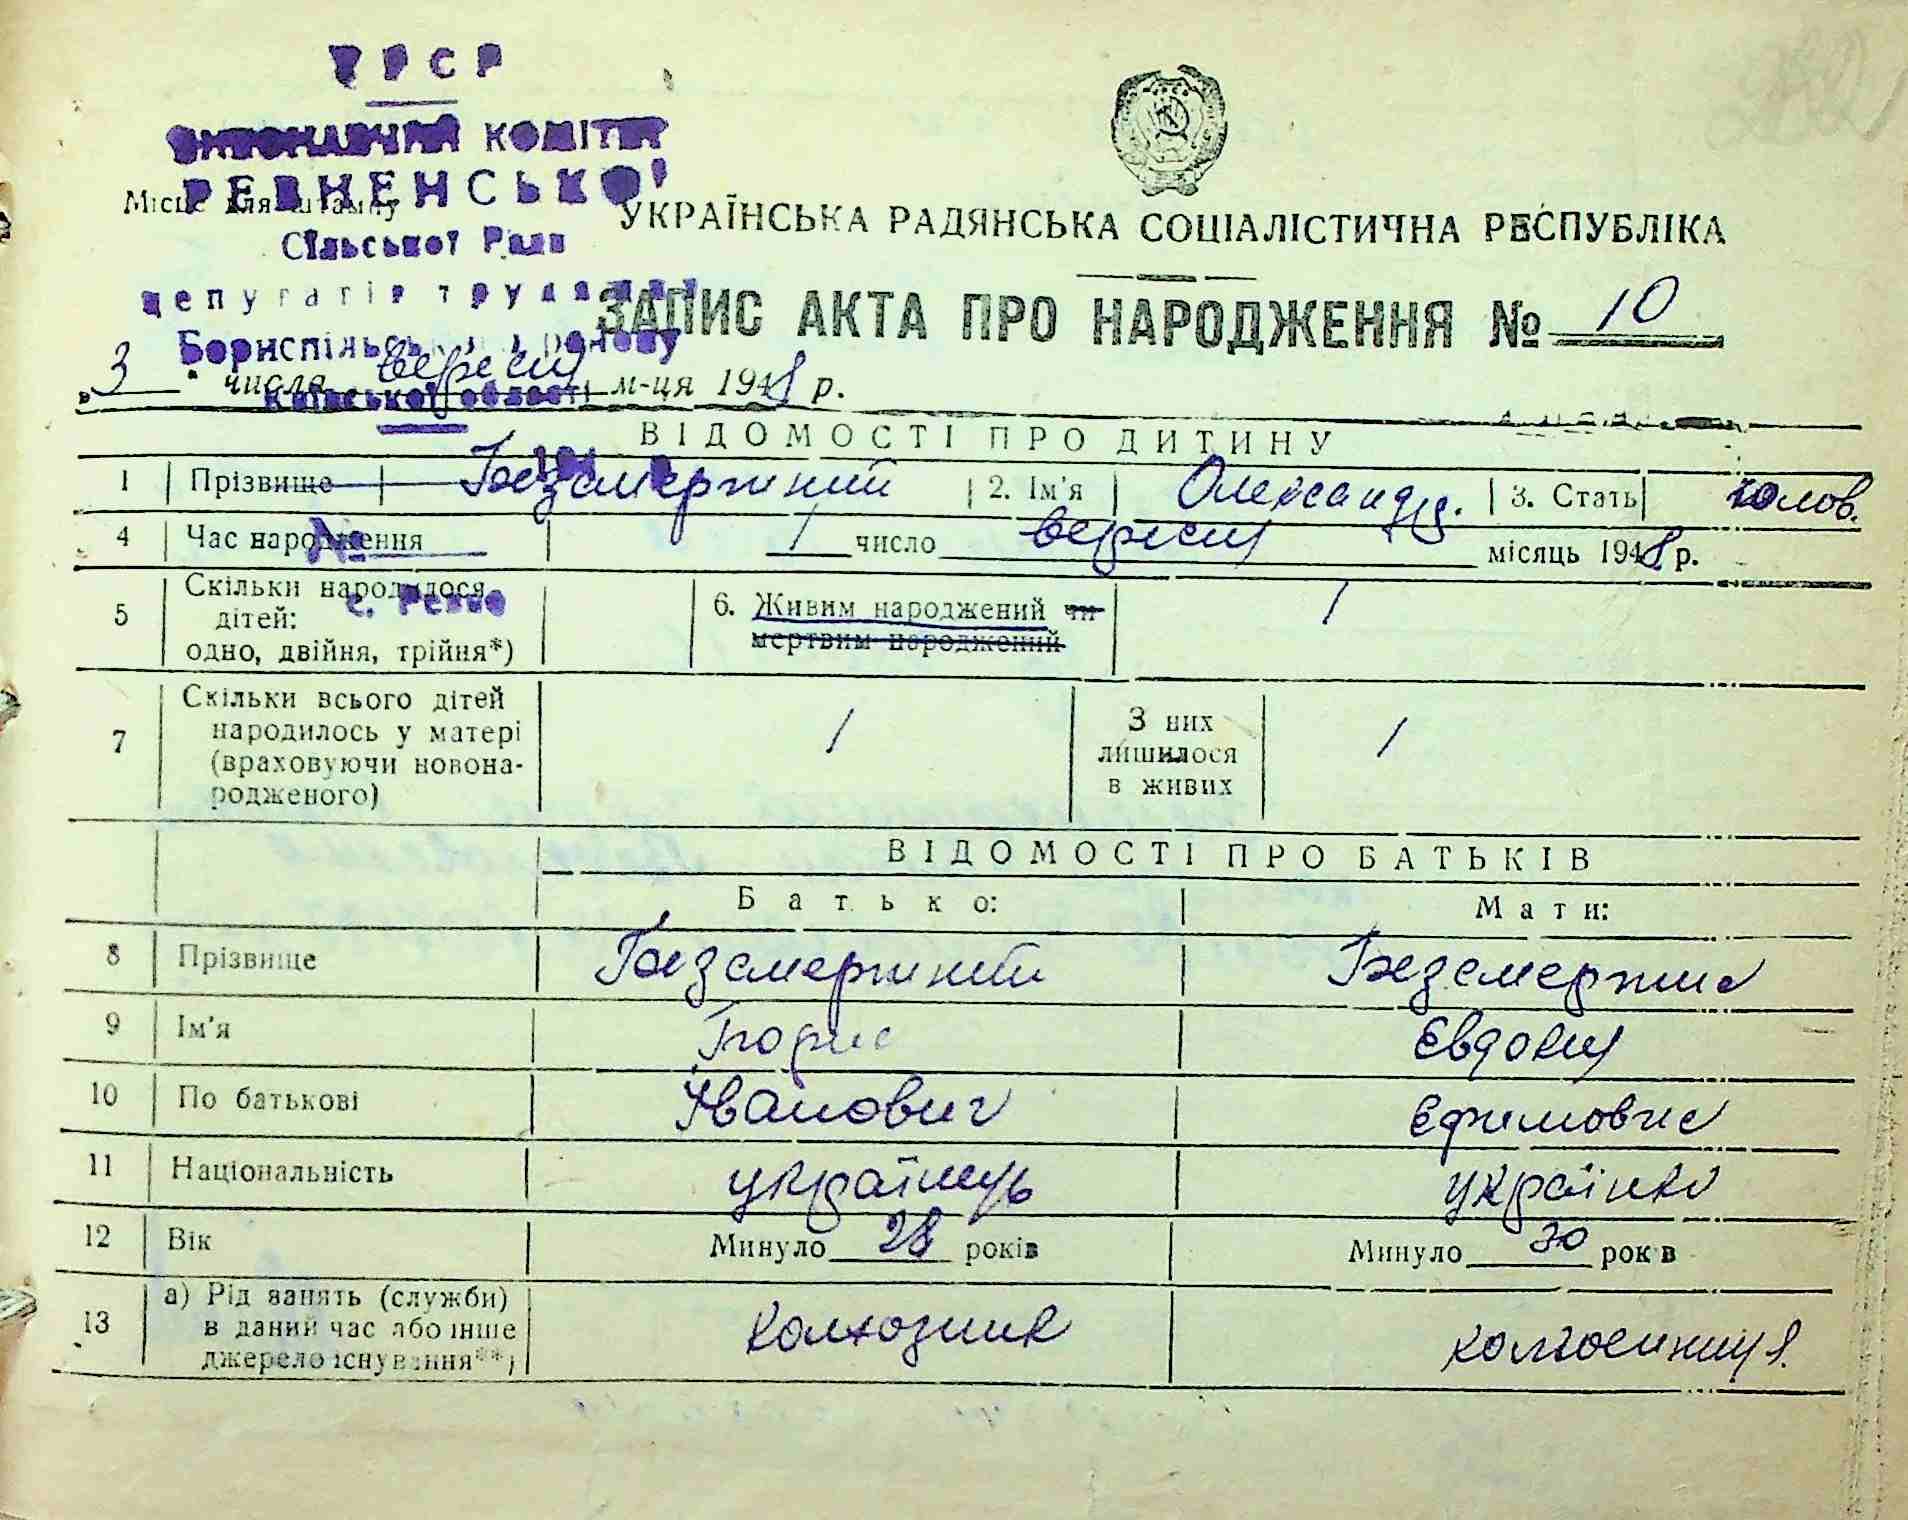 УРСР
ВИКОНАВЧИЙ КОМІТЕТ
РЕВНЕНСЬКОЇ
Місце для штампу
Сільської Ради
депутатів трудящих
Бориспільського району
Київської області
194 р.
№
с. Ревне
УКРАЇНСЬКА РАДЯНСЬКА СОЦІАЛІСТИЧНА РЕСПУБЛІКА
ЗАПИС АКТА ПРО НАРОДЖЕННЯ № 10
„3" числа вересня м-ця 1948 р.
ВІДОМОСТІ ПРО ДИТИНУ
1 Прізвище Безсмертний 2. Ім'я Олександр. 3. Стать чолов.
4 Час народження 1 число вересня місяць 1948 р.
5 Скільки народилося дітей: одно, двійня, трійня*) 6. Живим народжений чи мертвим народжений 1
7 Скільки всього дітей народилось у матері (враховуючи новонародженого) 1 З них лишилося в живих 1
ВІДОМОСТІ ПРО БАТЬКІВ
Батько: Мати:
8 Прізвище Безсмертний Безсмертна
9 Ім'я Борис Євдокия
10 По батькові Іванович Єфимовна
11 Національність українець українка
12 Вік Минуло 28 років Минуло 30 років
13 а) Рід занять (служби) в даний час або інше джерело існування**) колхозник колгосниця.